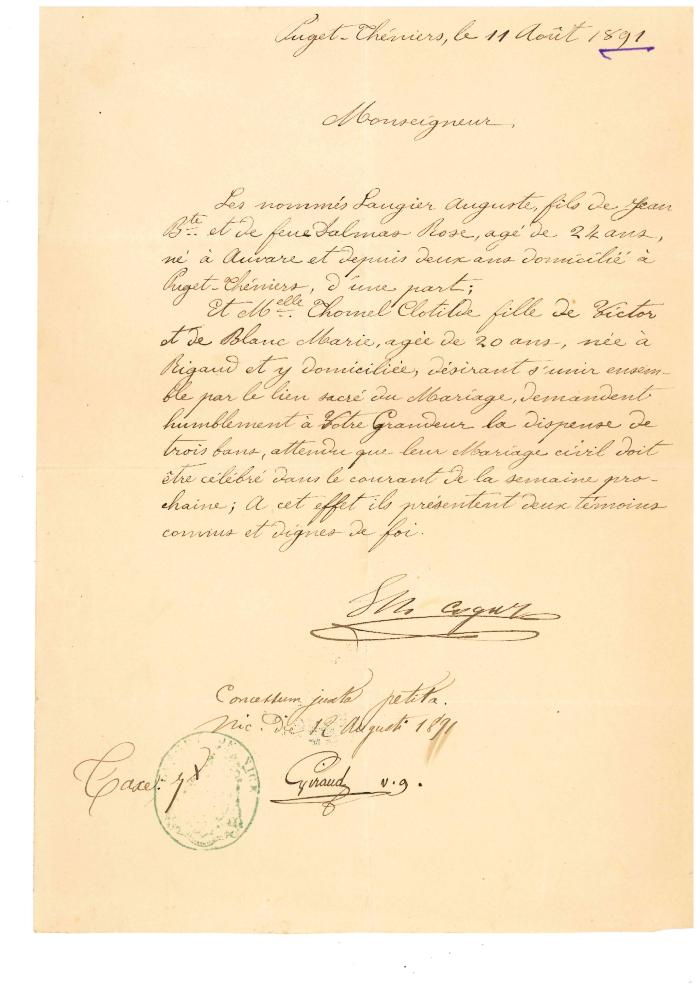 Puget-Théniers, le 11 Août 1891
Monseigneur,
Les nommés Laugier Auguste, fils de Jean
Bte et de feue Dalmas Rose, agé de 24 ans,
né à Auvare et depuis deux ans domicilié à
Puget-Théniers, d'une part;
Et Melle. Thomel Clotilde fille de Victor
et de Blanc Marie, agée de 20 ans, née à
Rigaud et y domiciliée, désirant s'unir ensem-
ble par le lien sacré du Mariage, demandent
humblement à Votre Grandeur la dispense de
trois bans, attendu que leur Mariage civil doit
être célébré dans le courant de la semaine pro-
chaine; A cet effet ils présentent deux témoins
connus et dignes de foi.
Concessum juxta petita.
Nic. die 12 Augusti 1891
Taxe: 7
Giraud v. g.